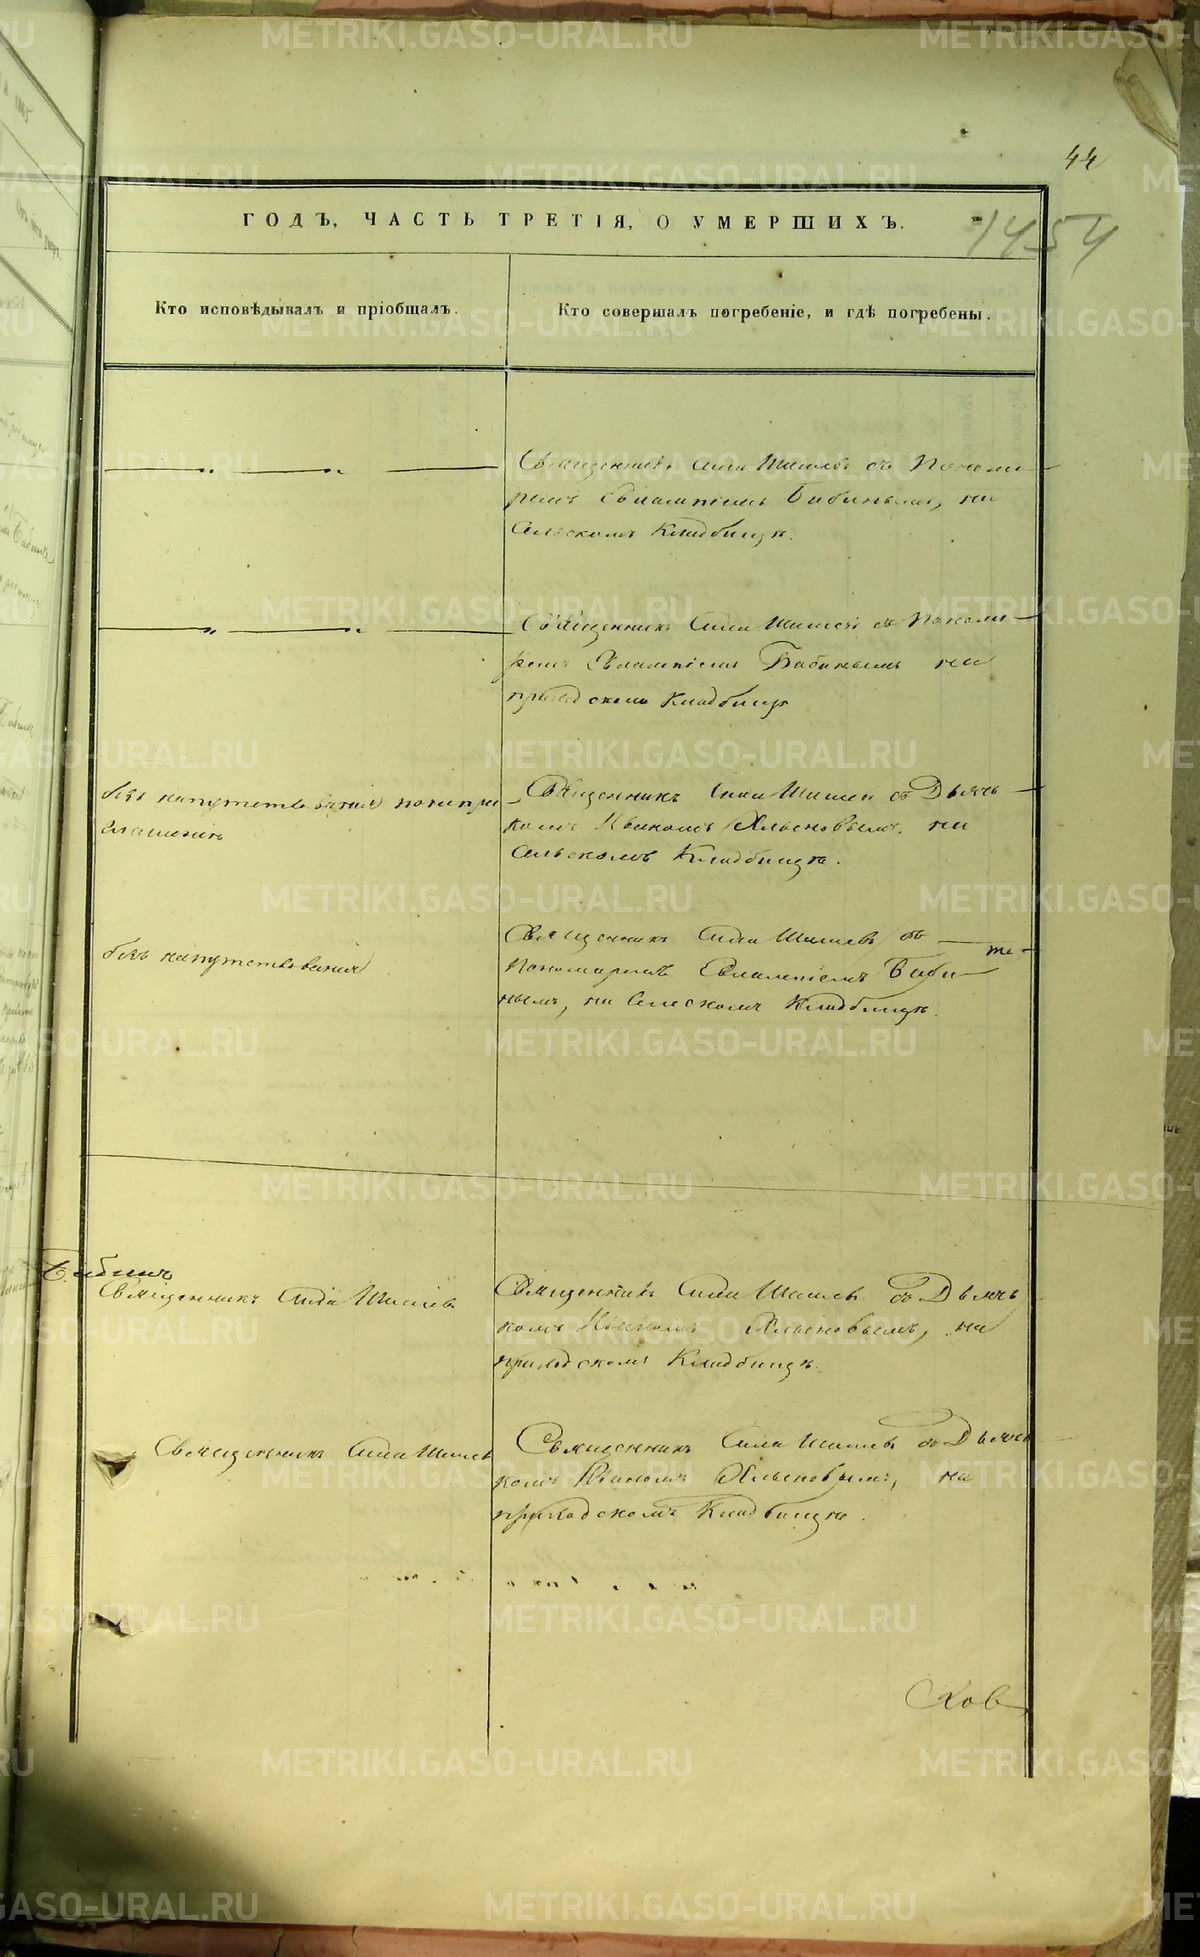 44
ГОДЪ, ЧАСТЬ ТРЕТІЯ, О УМЕРШИХЪ.
1454
Кто исповѣдывалъ и пріобщалъ.
Кто совершалъ погребеніе, и гдѣ погребены.
Священникъ Сила Шишевъ съ Понома-
ремъ Евлампіемъ Бабинымъ, на
Сельскомъ Кладбищѣ.
Священникъ Сила Шишевъ съ Понома-
ремъ Евлампіемъ Бабинымъ на
приходскомъ Кладбищѣ
безъ напутствованія по непри-
глашенію
Священникъ Сила Шишевъ съ Дьяч-
комъ Иваномъ на
Сельскомъ Кладбищѣ.
безъ напутствованія
Священникъ Сила Шишевъ съ
Пономаремъ Евлампіемъ Баби-
нымъ, на Сельскомъ Кладбищѣ.
Бабинъ
Священникъ Сила Шишевъ
Священникъ Сила Шишевъ съ Дьяч-
комъ Иваномъ на
приходскомъ Кладбищѣ.
Священникъ Сила Шишевъ
Священникъ Сила Шишевъ съ Дьяч-
комъ Иваномъ на
приходскомъ Кладбищѣ.
METRIKI.GASO-URAL.RU